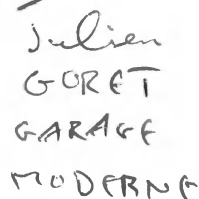 Julien
GORET
GARAGE
MODERNE